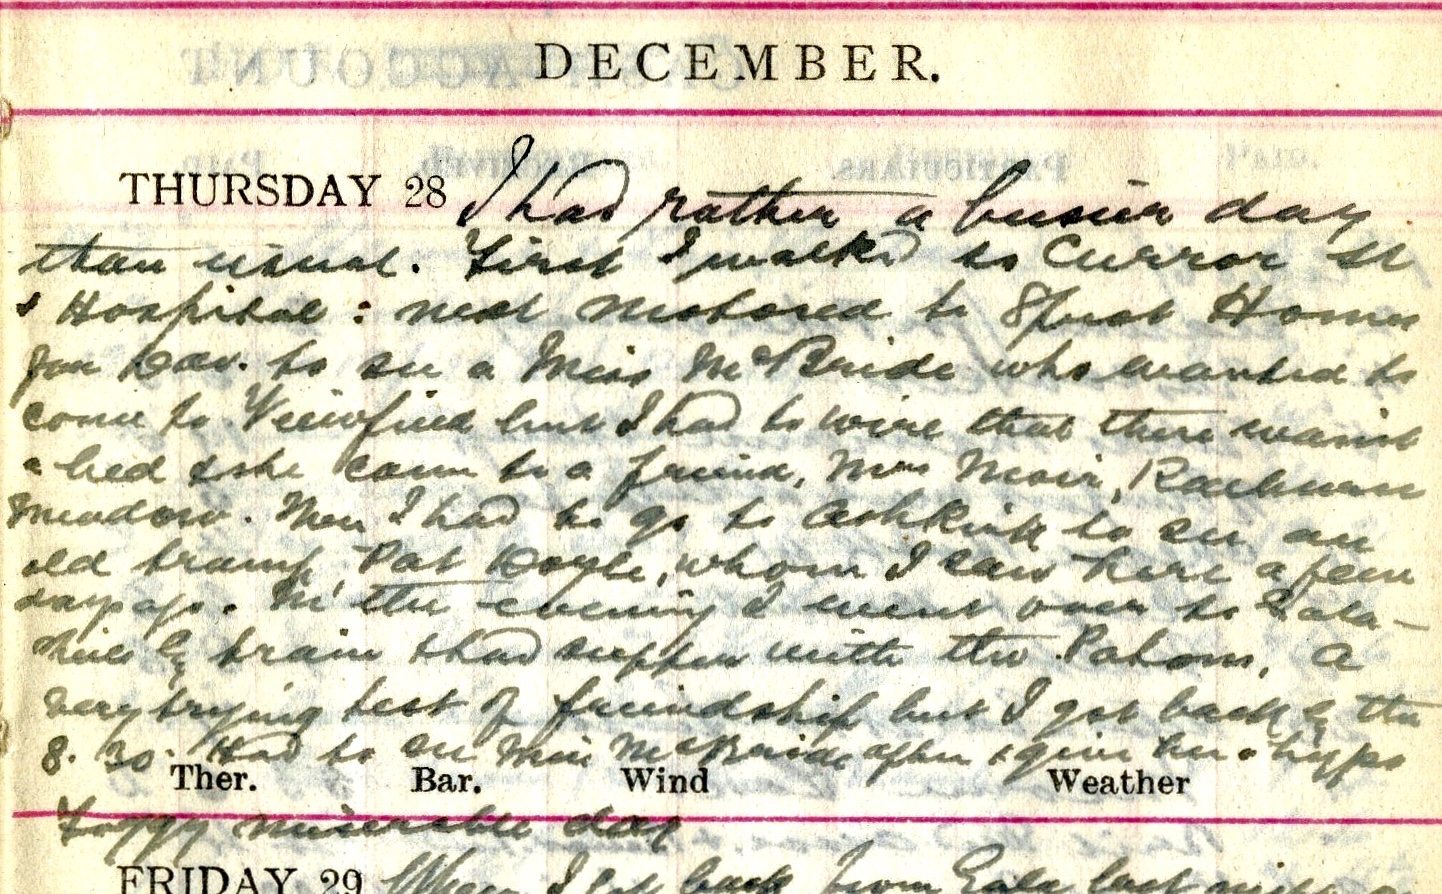 DECEMBER.
THURSDAY 28 I had rather a busier day
than usual. First I walked to Curror St
& Hospital: next motored to Spens Home
for Dav. to see a Miss McBride who wanted to
come to Viewfield but I had to wire that there wasn't
a bed & she came to a friend, Mrs Moir,
Meadow. Then I had to go to Ashkirk to see an
old tramp, Pat Doyle, whom I saw here a few
days ago. In the evening I went over to Gala-
shiels by train & had supper with the Patons, a
very trying test of friendship but I got back by the
8.30. Had to see Miss McBride after & give her a hypo
Ther. Bar. Wind Weather
Foggy miserable day
FRIDAY 29 When I got back from Gala last night